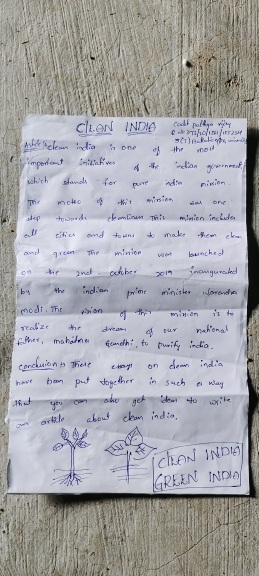 CLEAN INDIA
Cadet
Article:- clean india is one of the most
important initiatives of the indian government
which stands for pure india mission.
The motto of this mission was one
step towards cleanliness This mission includes
all cities and towns to make them clean
and green The mission was launched
on the 2nd october 2019 inaugurated
by the indian prime minister Narendra
modi. The vision of this mission is to
realize the dream of our national
father, mahatma Gandhi, to purify india.
Conclusion:- These essays on clean india
have been put together in such a way
that you can also get ideas to write
an article about clean india.
CLEAN INDIA
GREEN INDIA